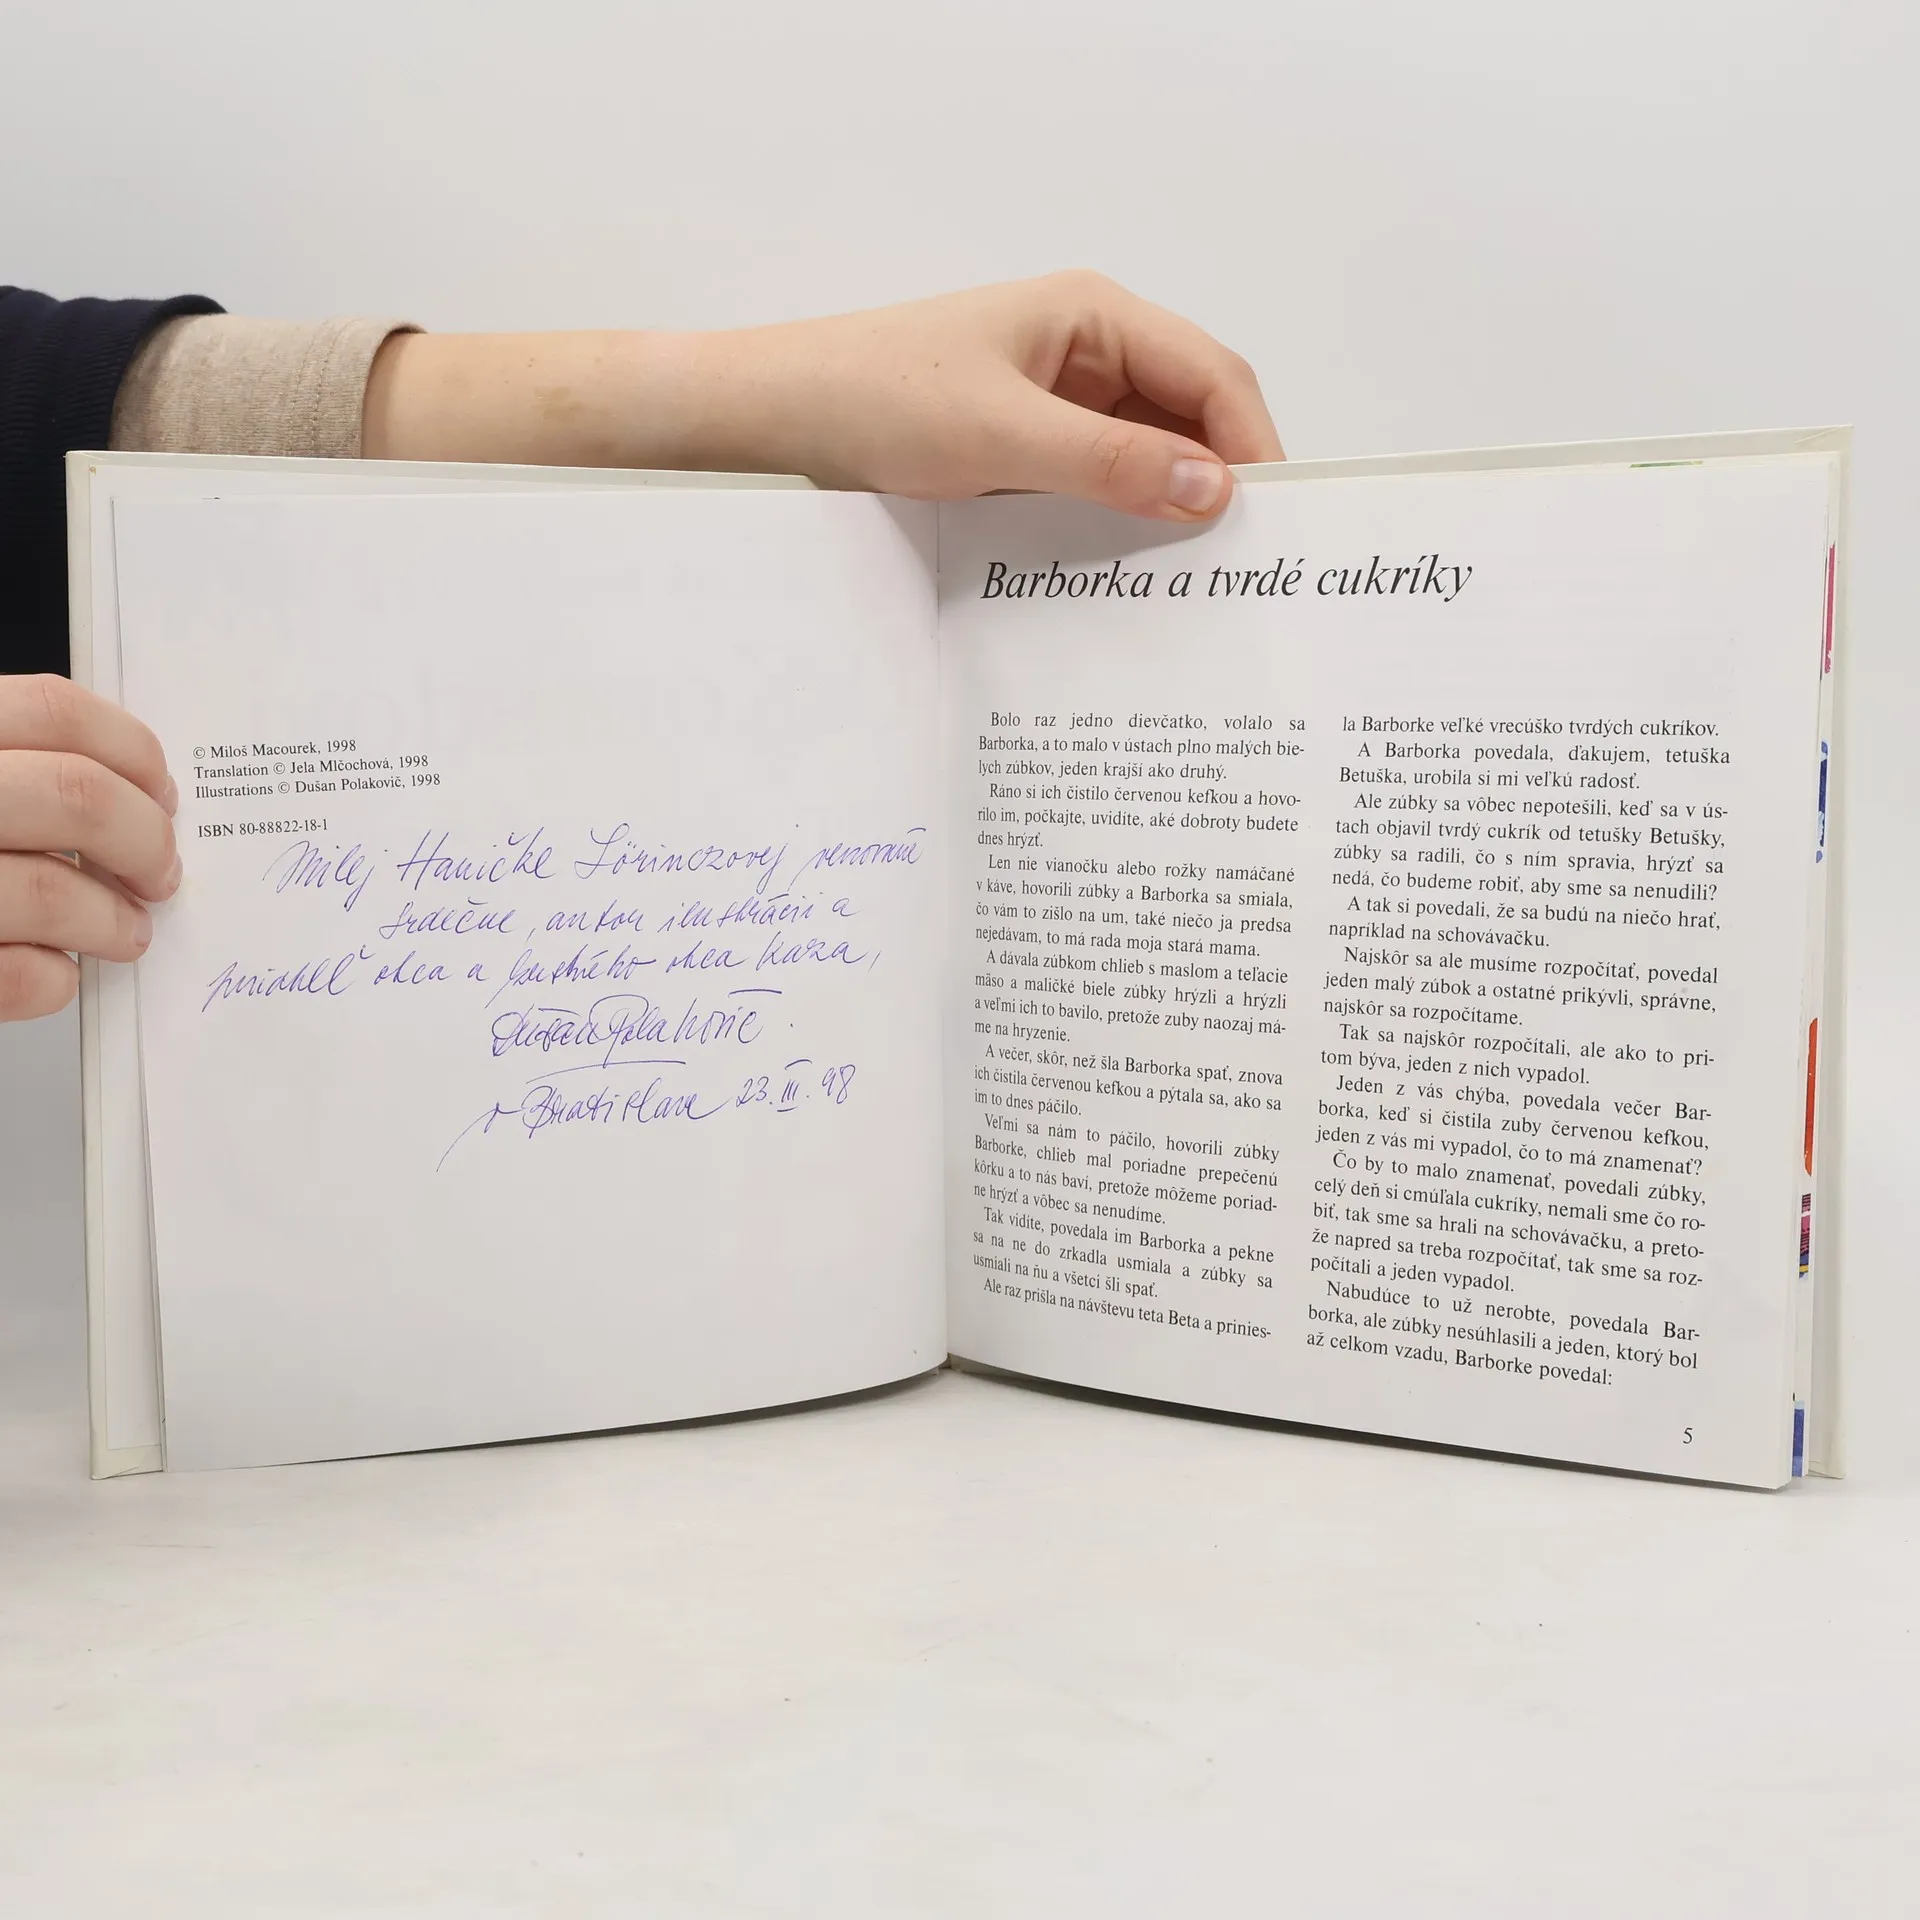 © Miloš Macourek, 1998
Translation © Jela Mlčochová, 1998
Illustrations © Dušan Polakovič, 1998
ISBN 80-88822-18-1
Milej Haničke Lörinczovej venované
srdečne, autor ilustrácii a
priateľ otca a otca
Dušan Polakovič.
v Bratislave 23. III. 98
Barborka a tvrdé cukríky
Bolo raz jedno dievčatko, volalo sa
Barborka, a to malo v ústach plno malých bie-
lych zúbkov, jeden krajší ako druhý.
Ráno si ich čistilo červenou kefkou a hovo-
rilo im, počkajte, uvidíte, aké dobroty budete
dnes hrýzť.
Len nie vianočku alebo rožky namáčané
v káve, hovorili zúbky a Barborka sa smiala,
čo vám to zišlo na um, také niečo ja predsa
nejedávam, to má rada moja stará mama.
A dávala zúbkom chlieb s maslom a teľacie
mäso a maličké biele zúbky hrýzli a hrýzli
a veľmi ich to bavilo, pretože zuby naozaj má-
me na hryzenie.
A večer, skôr, než šla Barborka spať, znova
ich čistila červenou kefkou a pýtala sa, ako sa
im to dnes páčilo.
Veľmi sa nám to páčilo, hovorili zúbky
Barborke, chlieb mal poriadne prepečenú
kôrku a to nás baví, pretože môžeme poriad-
ne hrýzť a vôbec sa nenudíme.
Tak vidíte, povedala im Barborka a pekne
sa na ne do zrkadla usmiala a zúbky sa
usmiali na ňu a všetci šli spať.
Ale raz prišla na návštevu teta Beta a prinies-
la Barborke veľké vrecúško tvrdých cukríkov.
A Barborka povedala, ďakujem, tetuška
Betuška, urobila si mi veľkú radosť.
Ale zúbky sa vôbec nepotešili, keď sa v ús-
tach objavil tvrdý cukrík od tetušky Betušky,
zúbky sa radili, čo s ním spravia, hrýzť sa
nedá, čo budeme robiť, aby sme sa nenudili?
A tak si povedali, že sa budú na niečo hrať,
napríklad na schovávačku.
Najskôr sa ale musíme rozpočítať, povedal
jeden malý zúbok a ostatné prikývli, správne,
najskôr sa rozpočítame.
Tak sa najskôr rozpočítali, ale ako to pri-
tom býva, jeden z nich vypadol.
Jeden z vás chýba, povedala večer Bar-
borka, keď si čistila zuby červenou kefkou,
jeden z vás mi vypadol, čo to má znamenať?
Čo by to malo znamenať, povedali zúbky,
celý deň si cmúľala cukríky, nemali sme čo ro-
biť, tak sme sa hrali na schovávačku, a preto-
že napred sa treba rozpočítať, tak sme sa roz-
počítali a jeden vypadol.
Nabudúce to už nerobte, povedala Bar-
borka, ale zúbky nesúhlasili a jeden, ktorý bol
až celkom vzadu, Barborke povedal:
5